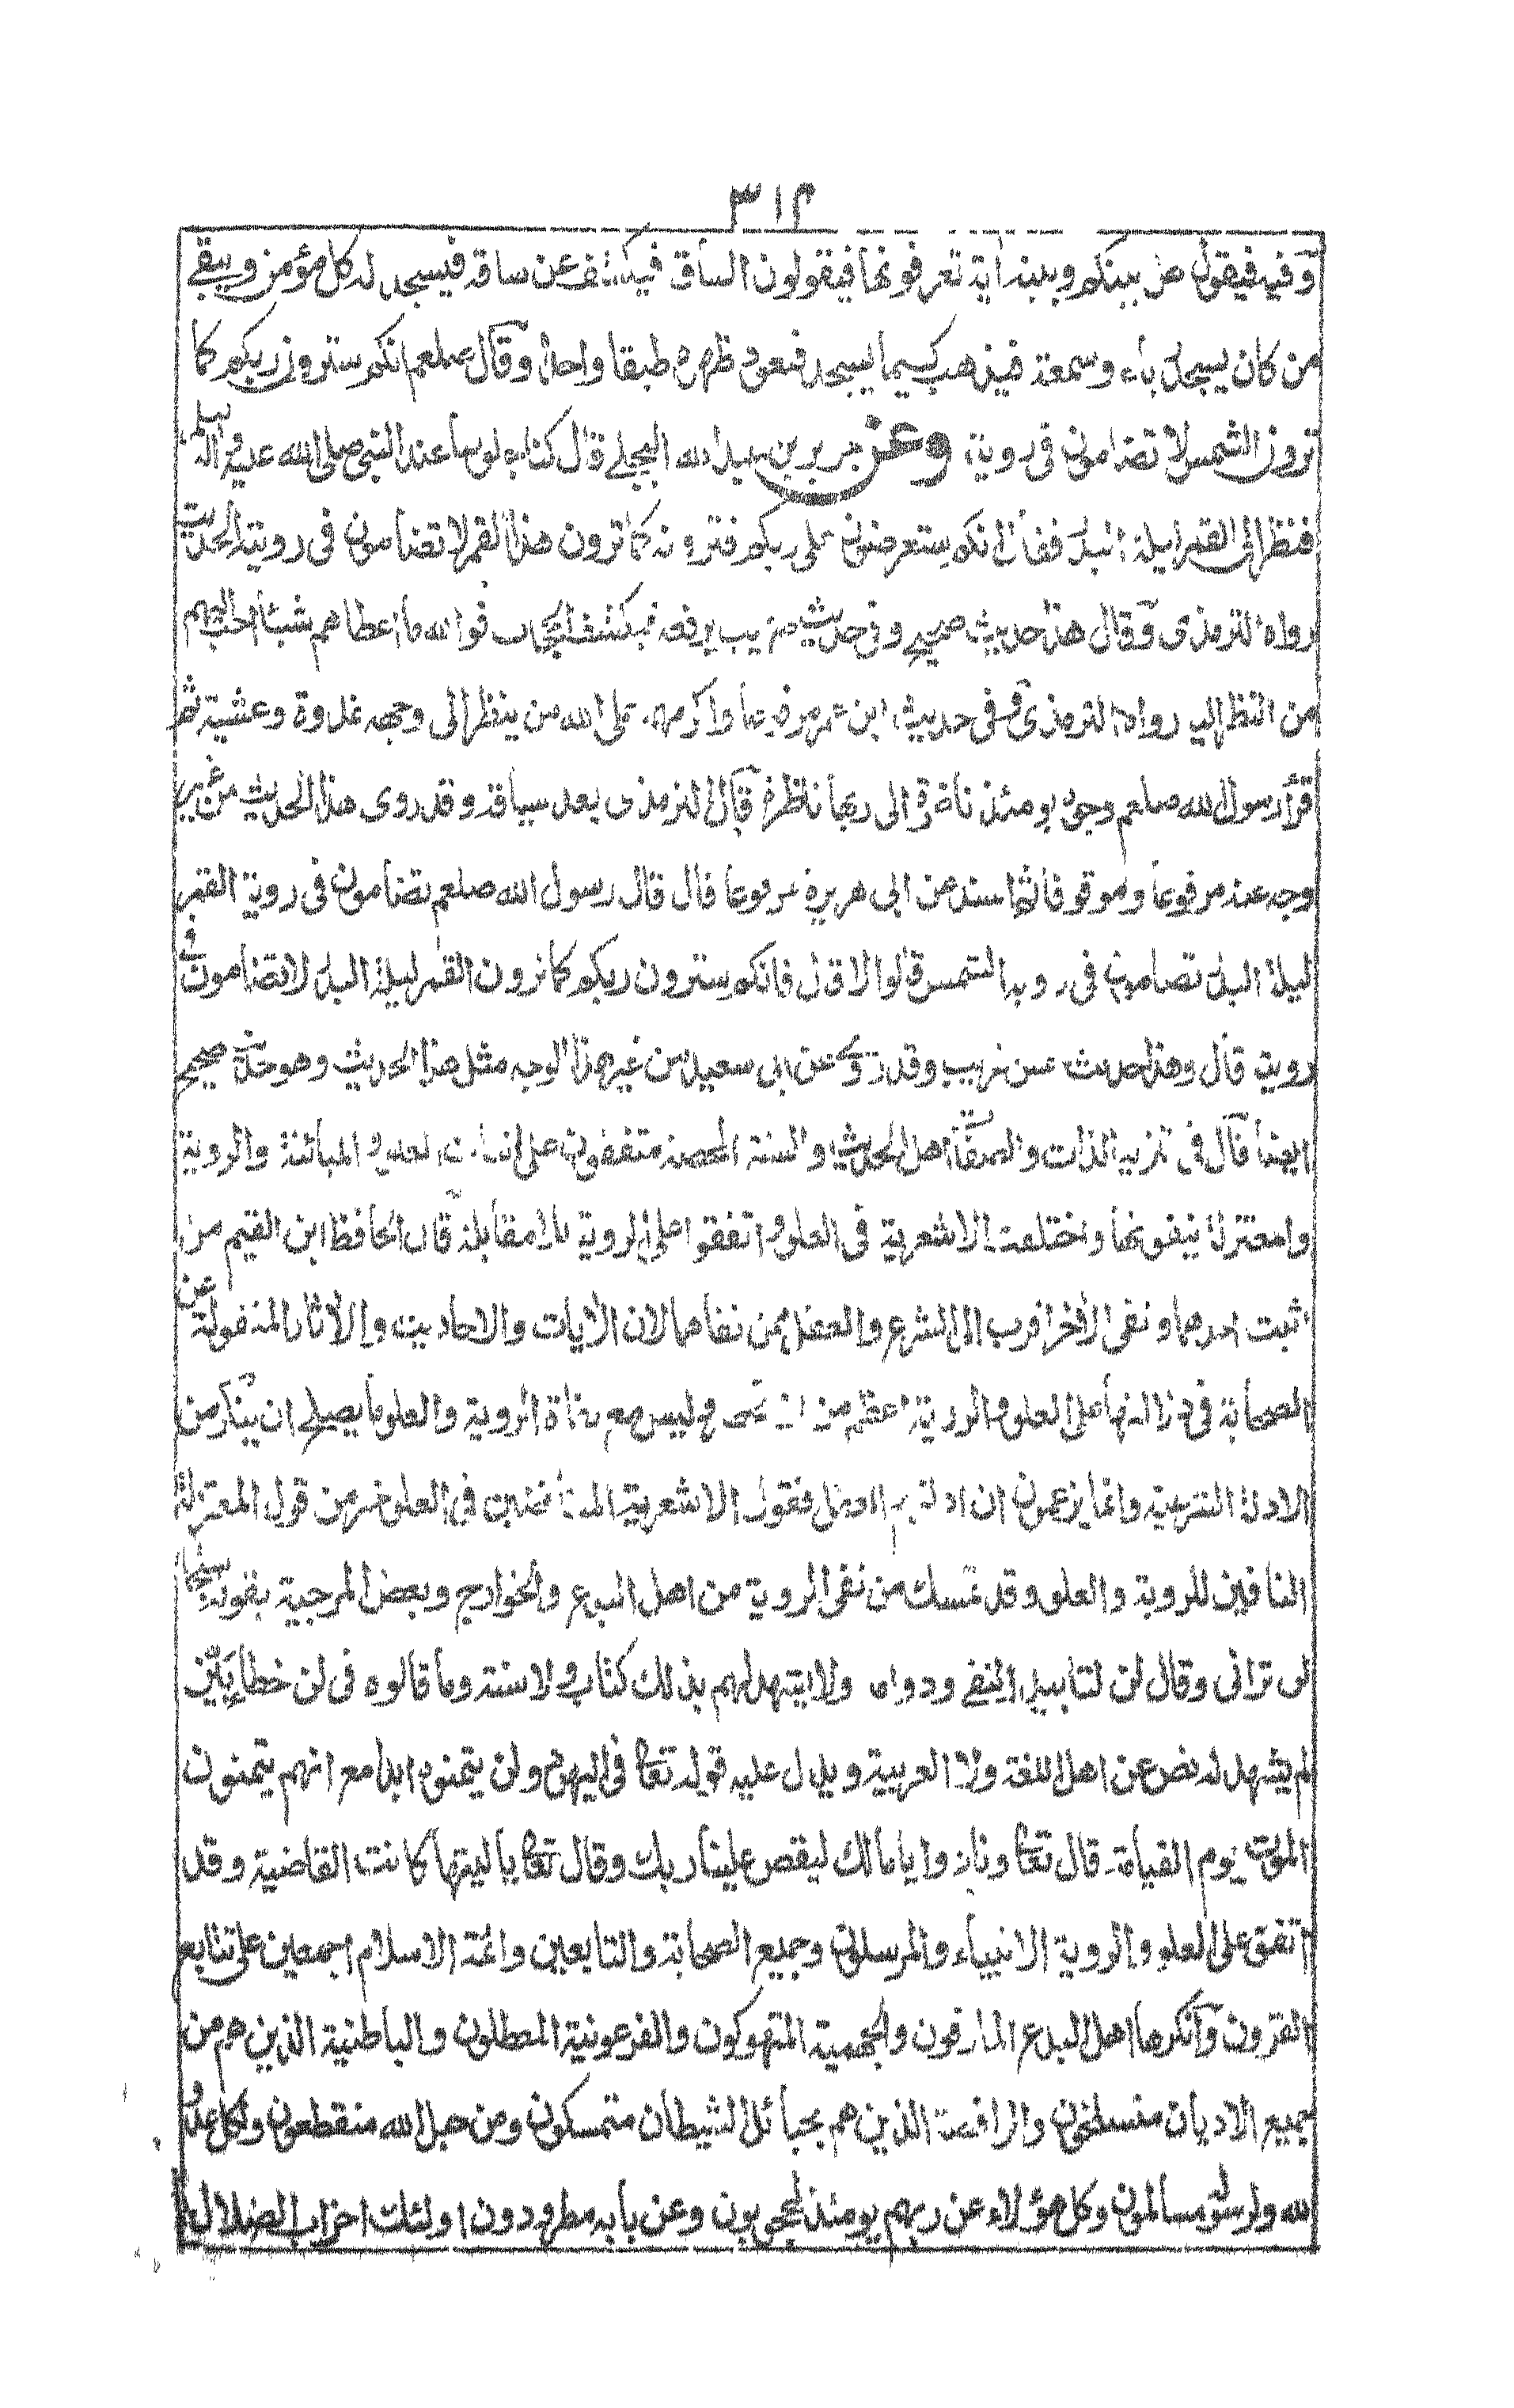 ٣١٤
وفيه فيقول هل بينكم وبينه اية تعرفونها فيقولون الساق فيكشف عن ساقه فيسجد له كل مؤمن ويبقى
من كان يسجد رياء وسمعة فيذهب كيما يسجد فيعود ظهره طبقا واحدا وقال صلعم انكم سترون ربكم كما
ترون الشمس لا تضامون في روية وعن جرير بن عبد الله البجلي قال كنا جلوسا عند النبي صلى الله عليه واله وسلم
فنظر الى القمر ليلة البدر فقال انكم ستعرضون على ربكم فترونه كما ترون هذا القمر لا تضامون في رويته الحديث
رواه الترمذي وقال هذا حديث صحيح وفي حديث صهيب يرفعه فيكشف الحجاب فوالله ما اعطاهم شيئا احب اليهم
من النظر اليه رواه الترمذي وفي حديث ابن عمر مرفوعا واكرمهم على الله من ينظر الى وجهه غدوة وعشية ثم
قرأ رسول الله صلعم وجوه يومئذ ناضرة الى ربها ناظرة قال الترمذي بعد سياقه وقد روى هذا الحديث من غير
وجه عنه مرفوعا وموقوفا ثم اسند عن ابي هريرة مرفوعا قال قال رسول الله صلعم تضامون في روية القمر
ليلة البدر تضامون في روية الشمس قالوا لا قال فانكم سترون ربكم كما ترون القمر ليلة البدر لا تضامون في
رويته قال وهذا حديث حسن غريب وقد روي عن ابي سعيد من غير هذا الوجه مثل هذا الحديث وهو حديث صحيح
ايضا قال في تنزيه الذات والصفات اهل الحديث والسنة المحضة متفقون على اثبات العلو والمباينة والروية
والمعتزلة ينفونها واختلفت الاشعرية في العلو واتفقوا على الروية بلا مقابلة قال الحافظ ابن القيم من
اثبت احدهما ونفى الاخر اقرب الى الشرع والعقل ممن نفاهما لان الايات والاحاديث والاثار المنقولة عن
الصحابة في دلالتها على العلو والروية اعظم من ان تحصى وليس مع نفاة الروية والعلو ما يصلح ان يذكر من
الادلة الشرعية وانما يزعمون ان ادلتهم العقل فقول الاشعرية المتناقضين في العلو خير من قول المعتزلة
النافين للروية والعلو وقد تمسك من نفى الروية من اهل البدع والخوارج وبعض المرجية بقوله سبحانه
لن تراني وقال لن لتابيد النفي ودوامه ولا يشهد لهم بذلك كتاب ولا سنة وما قالوه في لن خطأ بين
لم يشهد له نص عن اهل اللغة ولا العربية ويدل عليه قوله تعالى في اليهود ولن يتمنوه ابدا مع انهم يتمنون
الموت يوم القيامة قال تعالى ونادوا يا مالك ليقض علينا ربك وقال تعالى يا ليتها كانت القاضية وقد
اتفق على العلو والروية الانبياء والمرسلون وجميع الصحابة والتابعين وائمة الاسلام اجمعين على تتابع
القرون وانكرها اهل البدع المارقون والجهمية المتهوكون والفرعونية المعطلون والباطنية الذين هم من
جميع الاديان منسلخون والرافضة الذين هم بحبائل الشيطان متمسكون ومن حبل الله منقطعون ولكل عدو
لله ولرسوله مسالمون وكل هؤلاء عن ربهم يومئذ لمحجوبون وعن بابه مطرودون اولئك احزاب الضلال